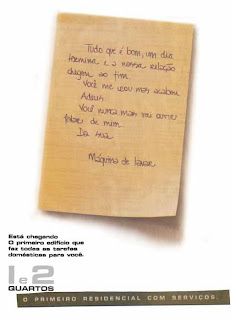 Tudo que é bom, um dia
termina e a nossa relação
chegou ao fim.
Você me usou mas acabou
Adeus
Você nunca mais vai ouvir
falar de mim.
Da sua
Máquina de lavar
Está chegando
O primeiro edifício que
faz todas as tarefas
domésticas para você.
1 e 2
QUARTOS
O PRIMEIRO RESIDENCIAL COM SERVIÇOS.